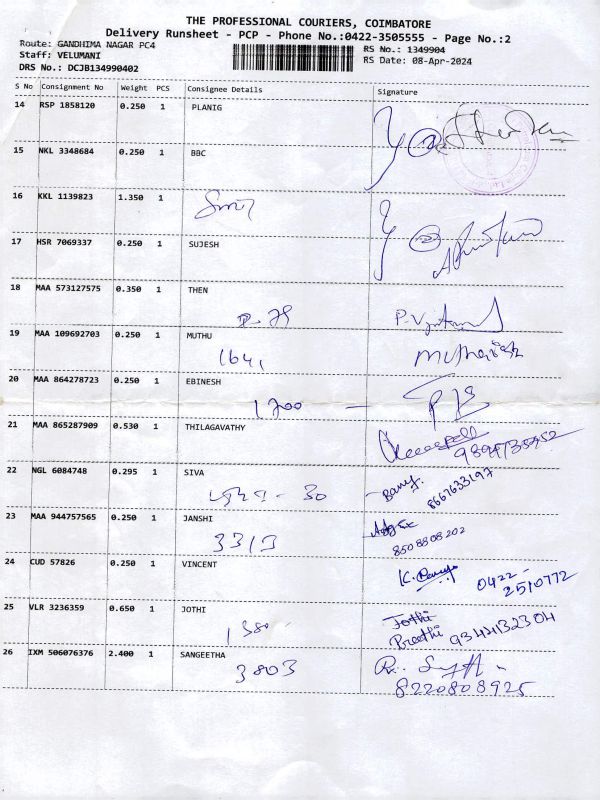 THE PROFESSIONAL COURIERS, COIMBATORE
Delivery Runsheet - PCP - Phone No.:0422-3505555 - Page No.:2
Route: GANDHIMA NAGAR PC4
RS No.: 1349904
Staff: VELUMANI
RS Date: 08-Apr-2024
DRS No.: DCJB134990402
S No Consignment No Weight PCS Consignee Details Signature
14 RSP 1858120 0.250 1 PLANIG
15 NKL 3348684 0.250 1 BBC
16 KKL 1139823 1.350 1
17 HSR 7069337 0.250 1 SUJESH
18 MAA 573127575 0.350 1 THEN
19 MAA 109692703 0.250 1 MUTHU
1641
20 MAA 864278723 0.250 1 EBINESH
1700
21 MAA 865287909 0.530 1 THILAGAVATHY
22 NGL 6084748 0.295 1 SIVA
8667633197
23 MAA 944757565 0.250 1 JANSHI
3313
8508808202
24 CUD 57826 0.250 1 VINCENT
0422-
2510772
25 VLR 3236359 0.650 1 JOTHI
Jothi
Preethi 9344132304
26 IXM 506076376 2.400 1 SANGEETHA
3803
8220808925